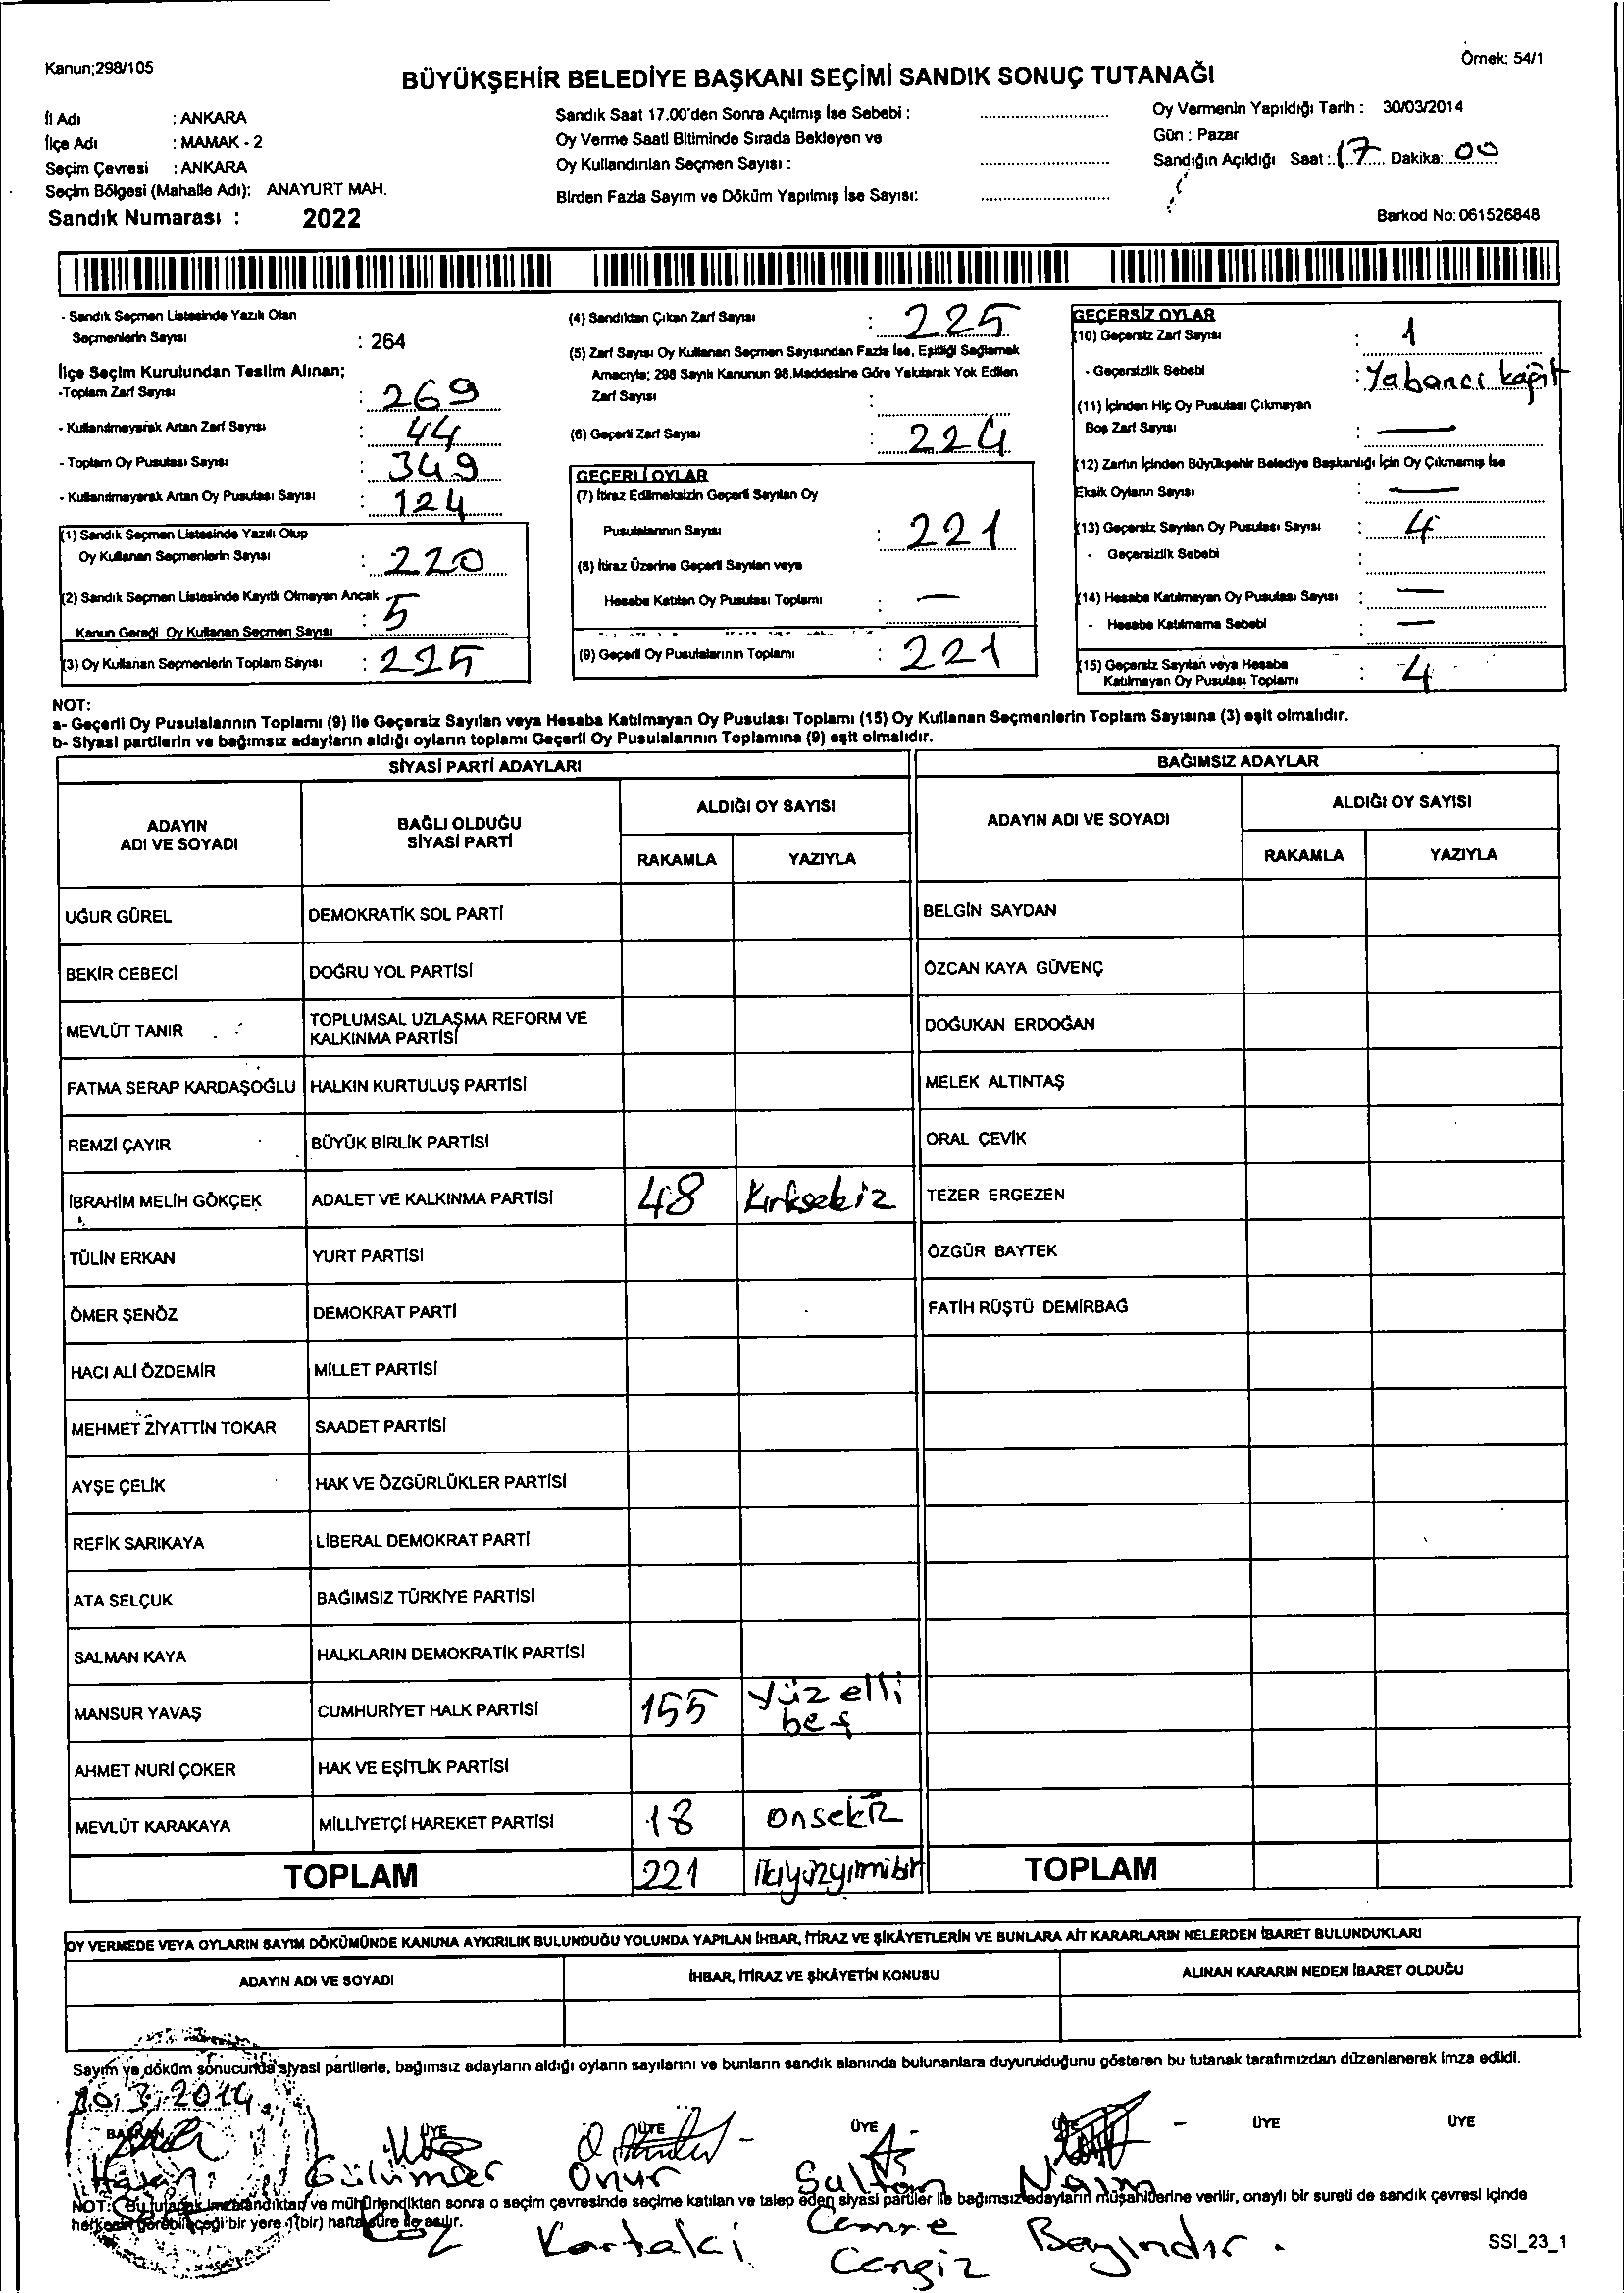 Kanun;298/105
Örnek: 54/1
BÜYÜKŞEHİR BELEDİYE BAŞKANI SEÇİMİ SANDIK SONUÇ TUTANAĞI
İl Adı : ANKARA
İlçe Adı : MAMAK - 2
Seçim Çevresi : ANKARA
Seçim Bölgesi (Mahalle Adı): ANAYURT MAH.
Sandık Numarası : 2022
Sandık Saat 17.00'den Sonra Açılmış İse Sebebi :
Oy Verme Saati Bitiminde Sırada Bekleyen ve
Oy Kullandırılan Seçmen Sayısı :
Birden Fazla Sayım ve Döküm Yapılmış İse Sayısı:
Oy Vermenin Yapıldığı Tarih : 30/03/2014
Gün : Pazar
Sandığın Açıldığı Saat : 17 Dakika: 00
Barkod No: 061526848
- Sandık Seçmen Listesinde Yazılı Olan
Seçmenlerin Sayısı : 264
İlçe Seçim Kurulundan Teslim Alınan;
-Toplam Zarf Sayısı : 269
- Kullanılmayarak Artan Zarf Sayısı : 44
- Toplam Oy Pusulası Sayısı : 349
- Kullanılmayarak Artan Oy Pusulası Sayısı : 124
(1) Sandık Seçmen Listesinde Yazılı Olup
Oy Kullanan Seçmenlerin Sayısı : 220
(2) Sandık Seçmen Listesinde Kayıtlı Olmayan Ancak
Kanun Gereği Oy Kullanan Seçmen Sayısı : 5
(3) Oy Kullanan Seçmenlerin Toplam Sayısı : 225
(4) Sandıktan Çıkan Zarf Sayısı : 225
(5) Zarf Sayısı Oy Kullanan Seçmen Sayısından Fazla İse, Eşitliği Sağlamak
Amacıyla; 298 Sayılı Kanunun 98.Maddesine Göre Yakılarak Yok Edilen
Zarf Sayısı :
(6) Geçerli Zarf Sayısı : 224
GEÇERLİ OYLAR
(7) İtiraz Edilmeksizin Geçerli Sayılan Oy
Pusulalarının Sayısı : 221
(8) İtiraz Üzerine Geçerli Sayılan veya
Hesaba Katılan Oy Pusulası Toplamı : —
(9) Geçerli Oy Pusulalarının Toplamı : 221
GEÇERSİZ OYLAR
(10) Geçersiz Zarf Sayısı : 1
- Geçersizlik Sebebi : Yabancı kağıt
(11) İçinden Hiç Oy Pusulası Çıkmayan
Boş Zarf Sayısı : —
(12) Zarfın İçinden Büyükşehir Belediye Başkanlığı İçin Oy Çıkmamış İse
Eksik Oyların Sayısı : —
(13) Geçersiz Sayılan Oy Pusulası Sayısı : 4
- Geçersizlik Sebebi :
(14) Hesaba Katılmayan Oy Pusulası Sayısı : —
- Hesaba Katılmama Sebebi : —
(15) Geçersiz Sayılan veya Hesaba
Katılmayan Oy Pusulası Toplamı : 4
NOT:
a- Geçerli Oy Pusulalarının Toplamı (9) ile Geçersiz Sayılan veya Hesaba Katılmayan Oy Pusulası Toplamı (15) Oy Kullanan Seçmenlerin Toplam Sayısına (3) eşit olmalıdır.
b- Siyasi partilerin ve bağımsız adayların aldığı oyların toplamı Geçerli Oy Pusulalarının Toplamına (9) eşit olmalıdır.
SİYASİ PARTİ ADAYLARI
BAĞIMSIZ ADAYLAR
ADAYIN
ADI VE SOYADI
BAĞLI OLDUĞU
SİYASİ PARTİ
ALDIĞI OY SAYISI
RAKAMLA YAZIYLA
ADAYIN ADI VE SOYADI
ALDIĞI OY SAYISI
RAKAMLA YAZIYLA
UĞUR GÜREL DEMOKRATİK SOL PARTİ BELGİN SAYDAN
BEKİR CEBECİ DOĞRU YOL PARTİSİ ÖZCAN KAYA GÜVENÇ
MEVLÜT TANIR TOPLUMSAL UZLAŞMA REFORM VE
KALKINMA PARTİSİ DOĞUKAN ERDOĞAN
FATMA SERAP KARDAŞOĞLU HALKIN KURTULUŞ PARTİSİ MELEK ALTINTAŞ
REMZİ ÇAYIR BÜYÜK BİRLİK PARTİSİ ORAL ÇEVİK
İBRAHİM MELİH GÖKÇEK ADALET VE KALKINMA PARTİSİ 48 Kırksekiz TEZER ERGEZEN
TÜLİN ERKAN YURT PARTİSİ ÖZGÜR BAYTEK
ÖMER ŞENÖZ DEMOKRAT PARTİ FATİH RÜŞTÜ DEMİRBAĞ
HACI ALİ ÖZDEMİR MİLLET PARTİSİ
MEHMET ZİYATTİN TOKAR SAADET PARTİSİ
AYŞE ÇELİK HAK VE ÖZGÜRLÜKLER PARTİSİ
REFİK SARIKAYA LİBERAL DEMOKRAT PARTİ
ATA SELÇUK BAĞIMSIZ TÜRKİYE PARTİSİ
SALMAN KAYA HALKLARIN DEMOKRATİK PARTİSİ
MANSUR YAVAŞ CUMHURİYET HALK PARTİSİ 155 Yüz elli
beş
AHMET NURİ ÇOKER HAK VE EŞİTLİK PARTİSİ
MEVLÜT KARAKAYA MİLLİYETÇİ HAREKET PARTİSİ 18 onsekiz
TOPLAM 221 ikiyüzyirmibir TOPLAM
OY VERMEDE VEYA OYLARIN SAYIM DÖKÜMÜNDE KANUNA AYKIRILIK BULUNDUĞU YOLUNDA YAPILAN İHBAR, İTİRAZ VE ŞİKÂYETLERİN VE BUNLARA AİT KARARLARIN NELERDEN İBARET BULUNDUKLARI
ADAYIN ADI VE SOYADI İHBAR, İTİRAZ VE ŞİKÂYETİN KONUSU ALINAN KARARIN NEDEN İBARET OLDUĞU
Sayım ve döküm sonucunda siyasi partilerle, bağımsız adayların aldığı oyların sayılarını ve bunların sandık alanında bulunanlara duyurulduğunu gösteren bu tutanak tarafımızdan düzenlenerek imza edildi.
30.3.2014
BAŞKAN ÜYE ÜYE ÜYE ÜYE ÜYE ÜYE
Hasan Onur Sultan Naim
NOT: Bu tutanak imzalandıktan ve mühürlendikten sonra o seçim çevresinde seçime katılan ve talep eden siyasi partiler ile bağımsız adayların müşahitlerine verilir, onaylı bir sureti de sandık çevresi içinde
herkesin görebileceği bir yere 1(bir) hafta süre ile asılır.
Koz Kartalcı Cemre Bayındır.
Cengiz
SSI_23_1